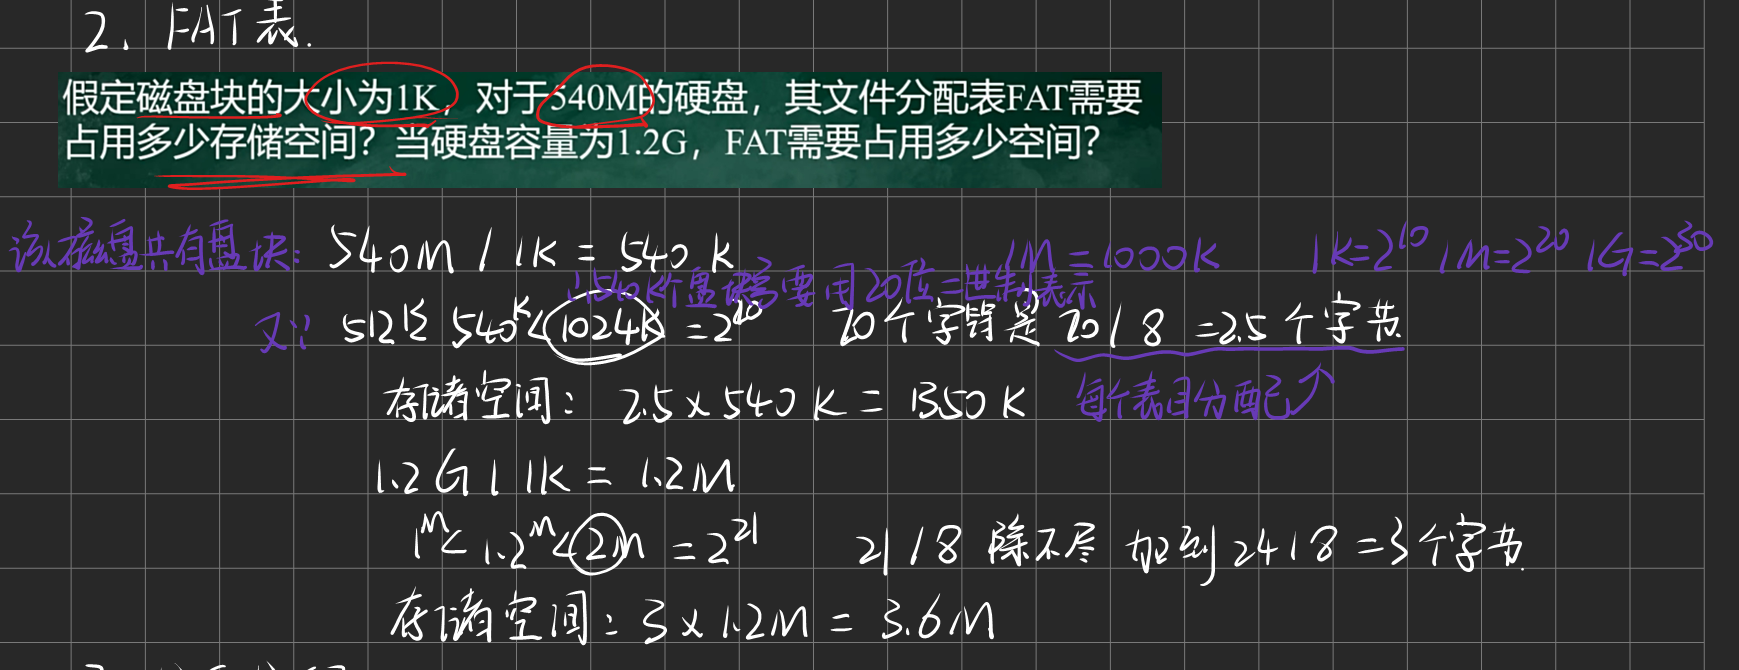 2. FAT表.
假定磁盘块的大小为1K，对于540M的硬盘，其文件分配表FAT需要
占用多少存储空间？当硬盘容量为1.2G，FAT需要占用多少空间？
该磁盘共有盘块: 540M / 1K = 540 K 1M = 1000K 1K=2^10 1M=2^20 1G=2^30
540K个盘块号要用20位二进制表示
又∵ 512K≤ 540K<1024K = 2^20 20个字 是 20 / 8 = 2.5 个字节
存储空间: 2.5 × 540 K = 1350 K 每个表目分配
1.2G / 1K = 1.2M
1M< 1.2M <2M = 2^21 21 / 8 除不尽 加到 24 / 8 = 3 个字节.
存储空间: 3 × 1.2M = 3.6M